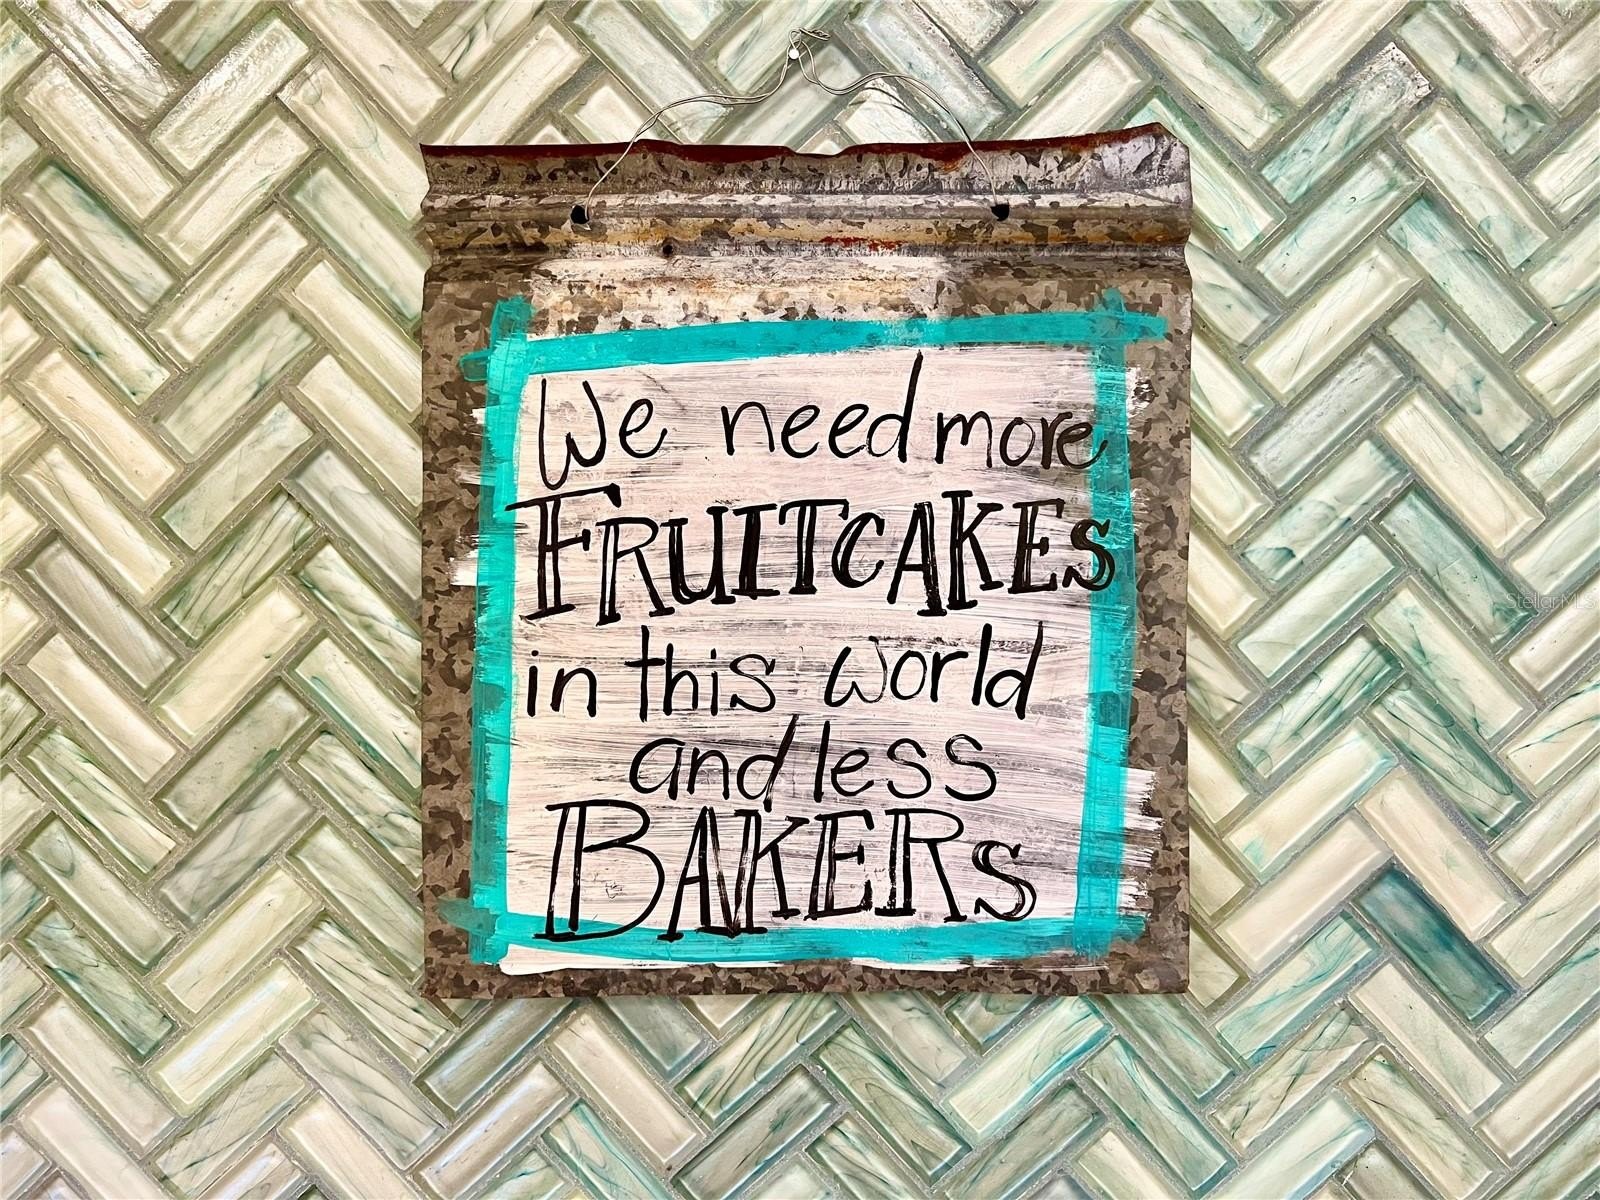 We need more
FRUITCAKES
in this world
and less
BAKERS
StellarMLS